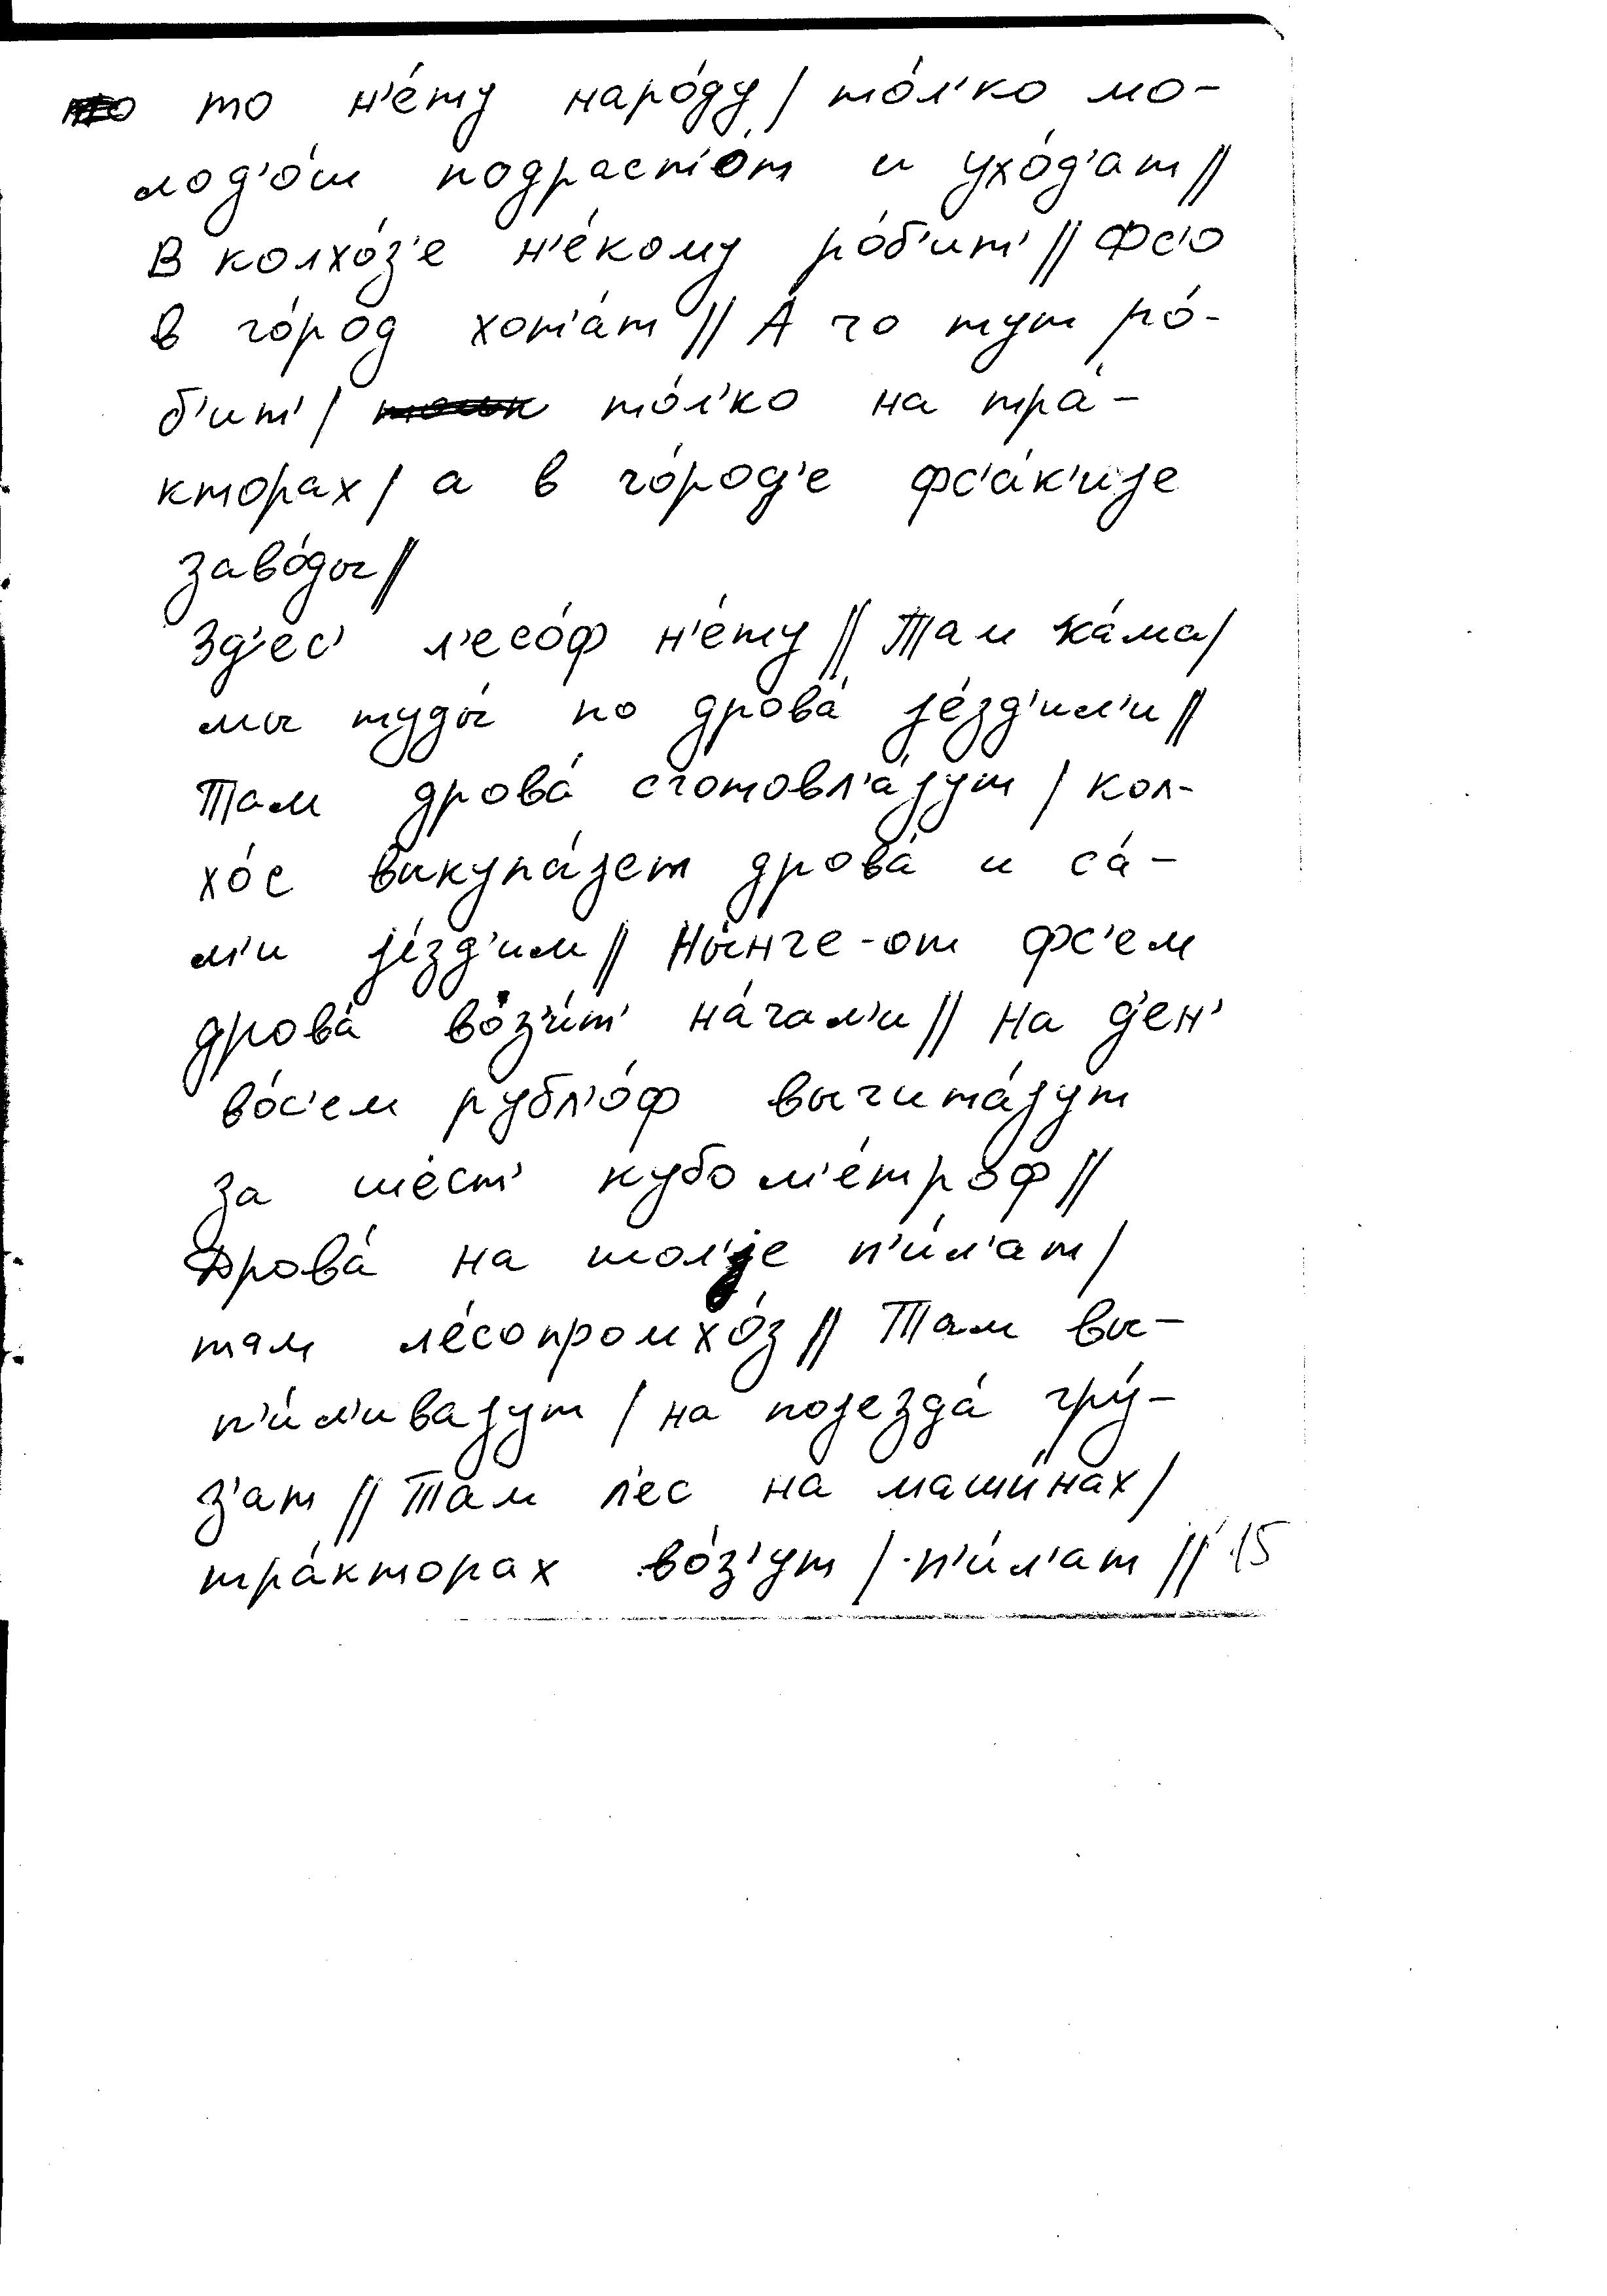 то н'е́ту наро́ду / то́л'ко мо-
лод'о́ш подраст'о́т и ухо́д'ат //
В колхо́з'е н'е́кому ро́б'ит' // Фс'о
в го́род хот'а́т // А́ чо тут ро́-
б'ит' / то́л'ко на тра́-
кторах / а в го́род'е фс'а́к'ијe
заво́ды //
Зд'ес' л'есо́ф н'е́ту // Там ка́ма /
мы туды́ по дрова́ је́зд'ил'и //
Там дрова́ сготовл'а́јут / кол-
хо́с выкупа́јет дрова́ и са́-
м'и је́зд'им // Ны́нче-от фс'ем
дрова́ воз'и́т' на́чал'и // На д'ен'
во́с'ем рубл'о́ф вычита́јут
за шест' кубом'е́троф //
Дрова́ на мол'је п'и́л'ат /
там ле́сопромхо́з // Там вы-
п'и́л'ивајут / на појезда́ гру́-
з'ат // Там л'ес на маши́нах /
тра́кторах во́з'ут / п'и́л'ат // 15